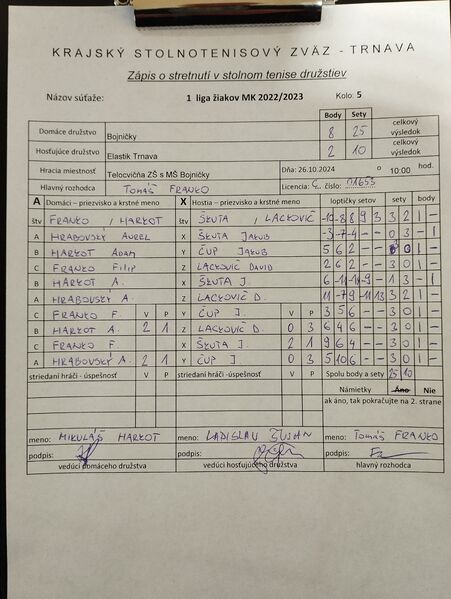 KRAJSKÝ STOLNOTENISOVÝ ZVÄZ - TRNAVA
Zápis o stretnutí v stolnom tenise družstiev
Názov súťaže: 1 liga žiakov MK 2022/2023 Kolo: 5
Body Sety
Domáce družstvo Bojničky 8 25 celkový výsledok
Hosťujúce družstvo Elastik Trnava 2 10 celkový výsledok
Hracia miestnosť Telocvičňa ZŠ s MŠ Bojničky Dňa: 26.10.2024 o 10:00 hod.
Hlavný rozhodca TOMÁŠ FRANKO Licencia: C číslo: 01653
A Domáci – priezvisko a krstné meno X Hostia - priezvisko a krstné meno loptičky setov sety body
štv FRANKO / HARKOT štv ŠKUTA / LACKOVIČ -10 -8 8 9 3 3 2 1 -
A HRABOVSKÝ AUREL X ŠKUTA JAKUB -3 -7 -4 - - 0 3 - 1
B HARKOT ADAM Y ČUP JAKUB 5 6 2 - - 3 0 1 -
C FRANKO FILIP Z LACKOVIČ DAVID 2 6 2 - - 3 0 1 -
B HARKOT A. X ŠKUTA J. 6 -11 -11 -9 - 1 3 - 1
A HRABOVSKÝ A. Z LACKOVIČ D. 11 -7 9 -11 13 3 2 1 -
C FRANKO F. V P Y ČUP J. V P 3 5 6 - - 3 0 1 -
B HARKOT A. 2 1 Z LACKOVIČ D. 0 3 6 4 6 - - 3 0 1 -
C FRANKO F. X ŠKUTA J. 2 1 9 6 4 - - 3 0 1 -
A HRABOVSKÝ A. 2 1 Y ČUP J. 0 3 5 10 6 - - 3 0 1 -
striedaní hráči -úspešnosť V P striedaní hráči -úspešnosť V P Spolu body a sety 25 10
Námietky Áno Nie
ak áno, tak pokračujte na 2. strane
meno: MIKULÁŠ HARKOT meno: LADISLAV meno: TOMÁŠ FRANKO
podpis: podpis: podpis:
vedúci domáceho družstva vedúci hosťujúceho družstva hlavný rozhodca